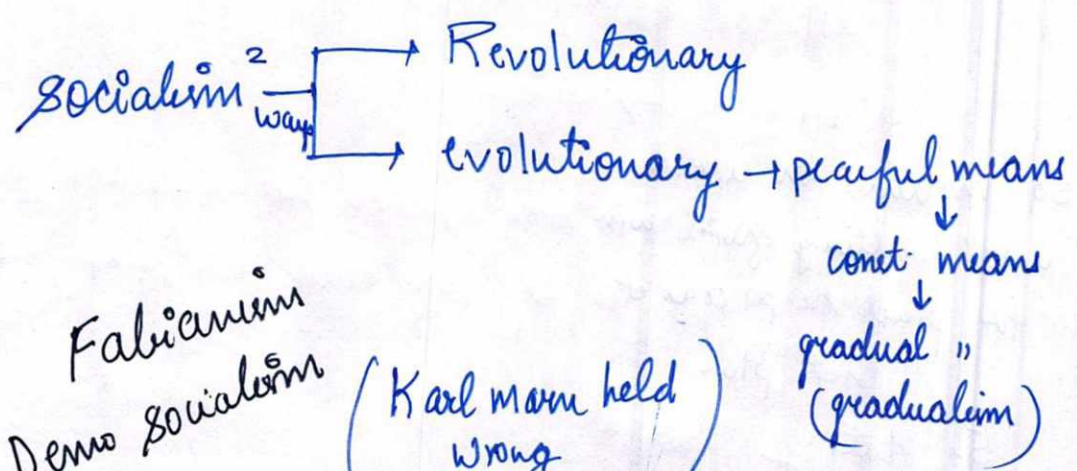 Socialism 2 ways
Revolutionary
evolutionary → peaceful means
↓
const. means
↓
gradual "
(gradualism)
Fabianism
Demo socialism
(Karl marx held
wrong)